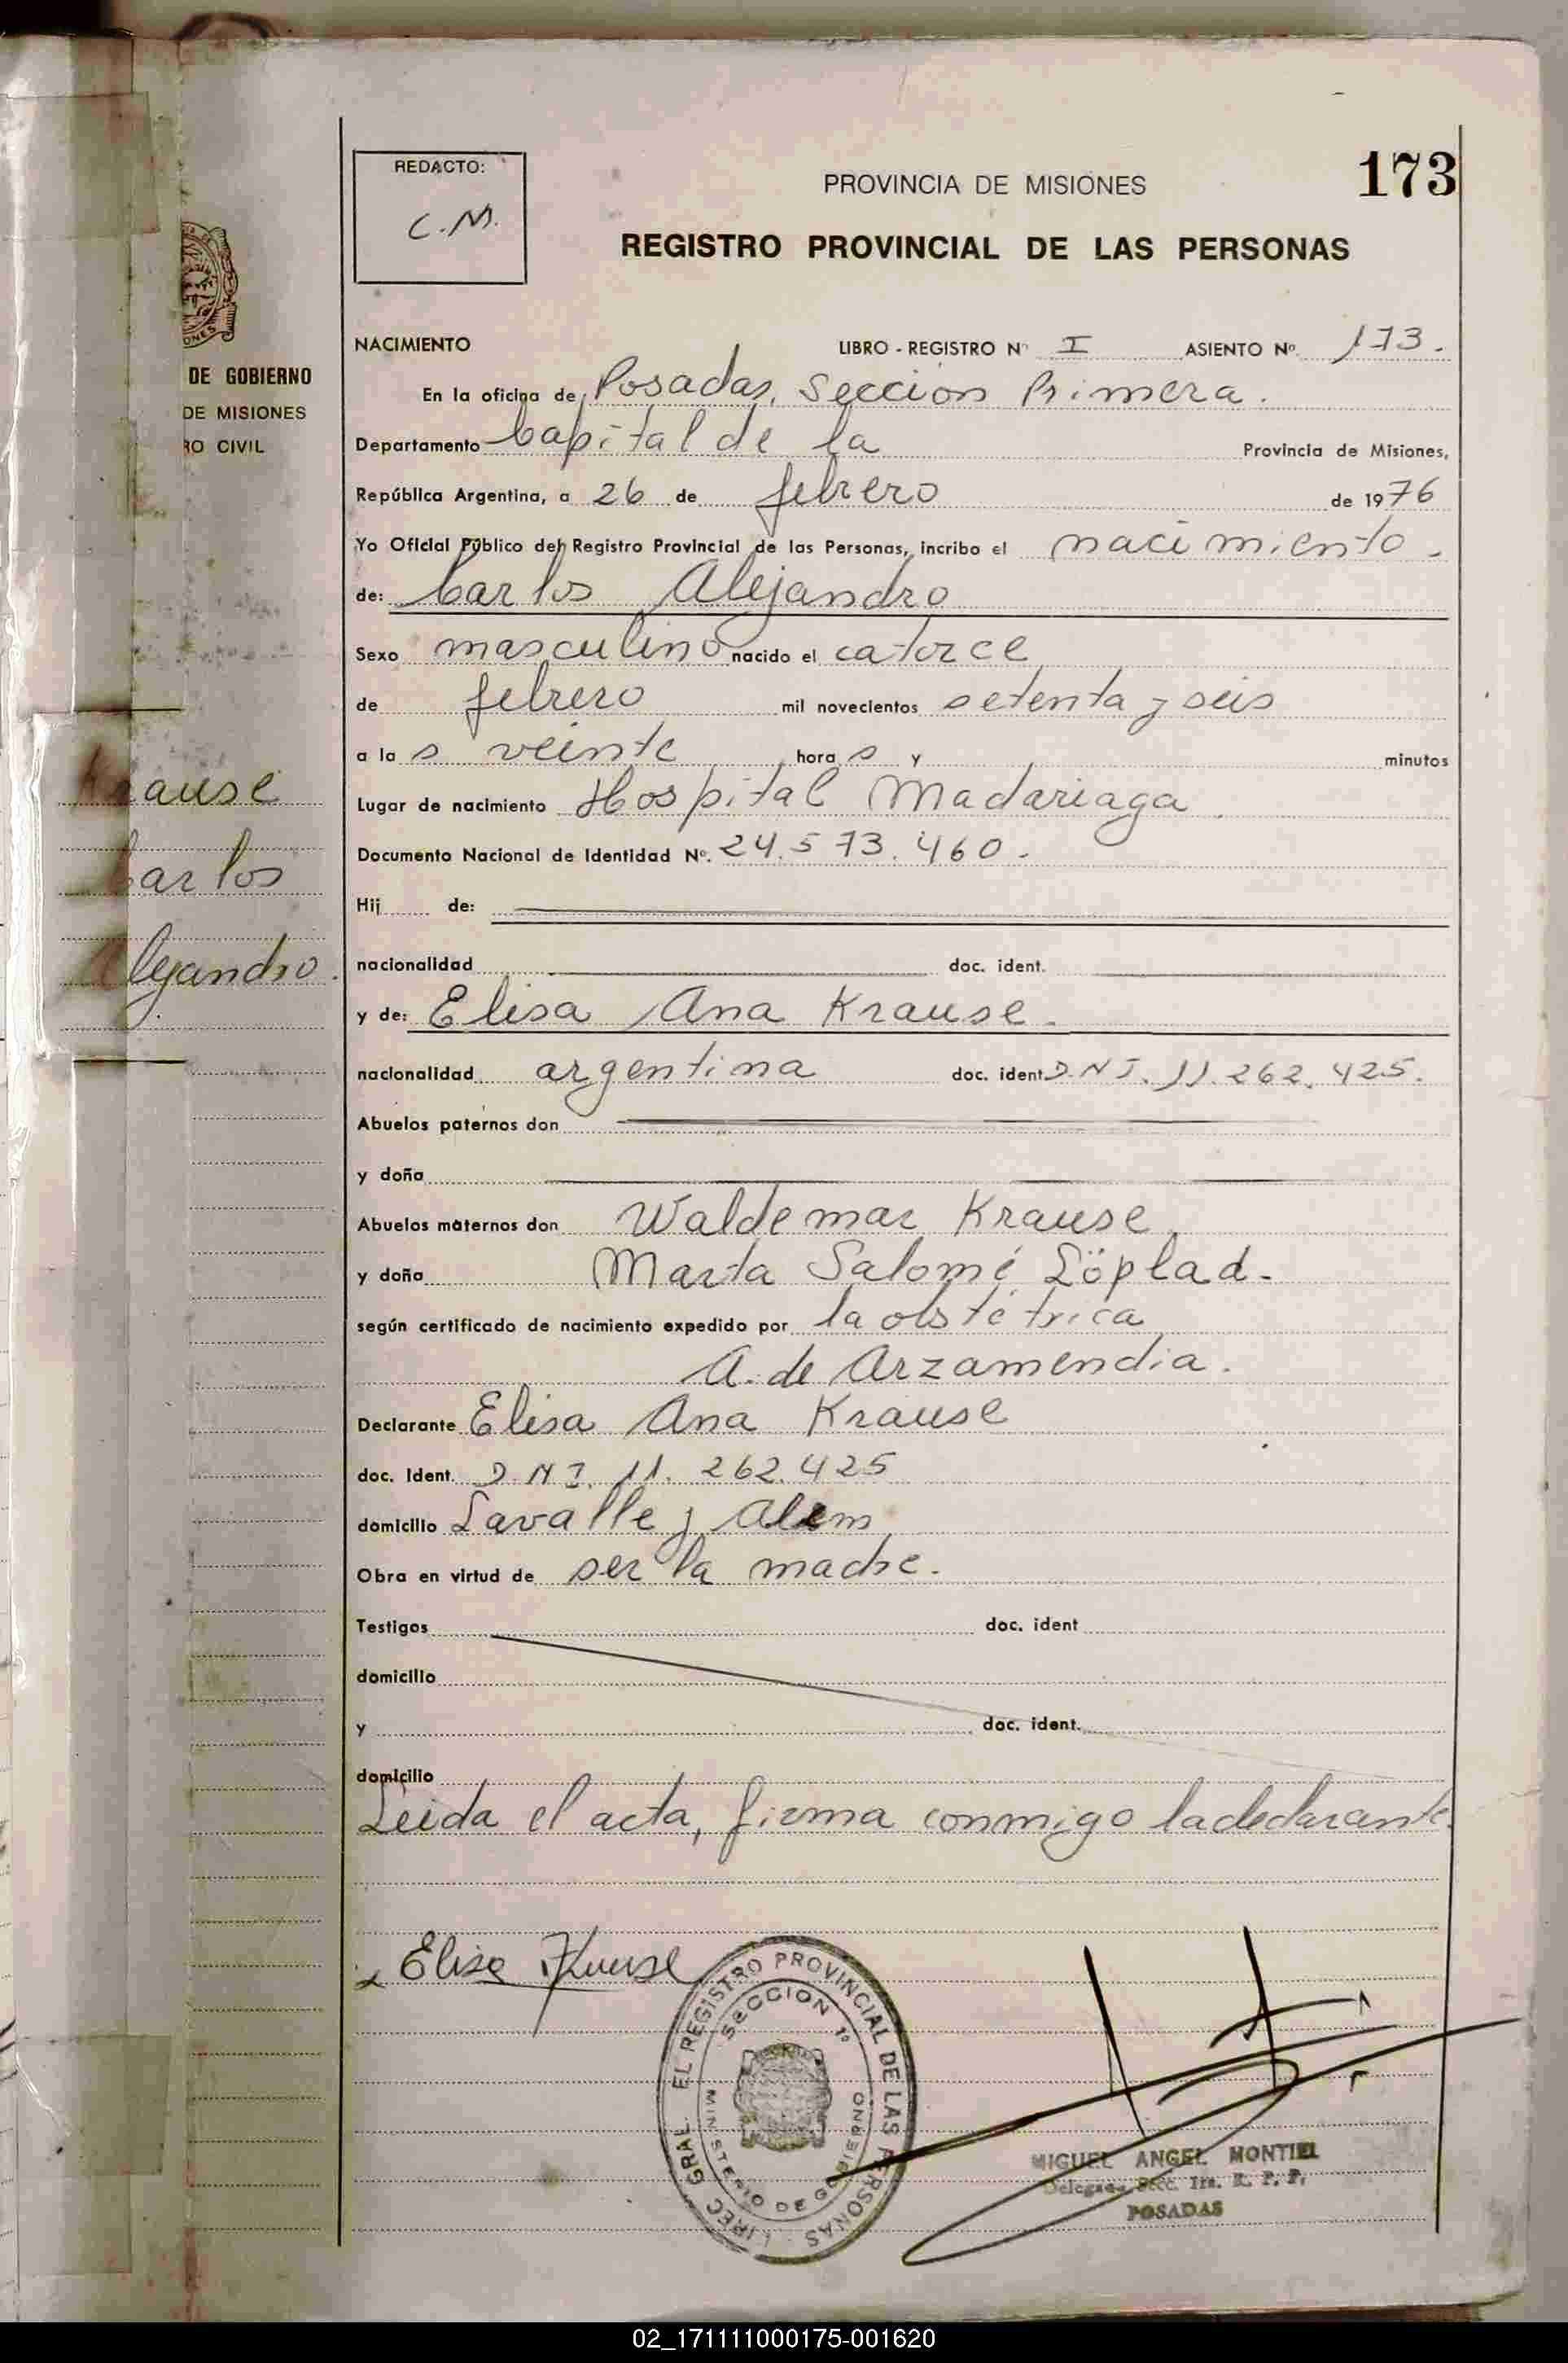 REDACTO:
C.M.
PROVINCIA DE MISIONES
173
REGISTRO PROVINCIAL DE LAS PERSONAS
DE GOBIERNO
DE MISIONES
RO CIVIL
Krause
Carlos
Alejandro.
NACIMIENTO LIBRO - REGISTRO Nº I ASIENTO Nº 173.
En la oficina de Posadas, Sección Primera.
Departamento Capital de la Provincia de Misiones,
República Argentina, a 26 de febrero de 1976
Yo Oficial Público del Registro Provincial de las Personas, incribo el nacimiento.
de: Carlos Alejandro
Sexo masculino nacido el catorce
de febrero mil novecientos setenta y seis
a la s veinte hora s y minutos
Lugar de nacimiento Hospital Madariaga
Documento Nacional de Identidad Nº. 24.573.460.
Hij de:
nacionalidad doc. ident.
y de: Elisa Ana Krause.
nacionalidad argentina doc. ident D.N.I. 11.262.425.
Abuelos paternos don
y doña
Abuelos maternos don Waldemar Krause
y doña Marta Salomé Löplad.
según certificado de nacimiento expedido por la obstétrica
A. de Arzamendia.
Declarante Elisa Ana Krause
doc. Ident. D.N.I. 11.262.425
domicilio Lavalle y Alem
Obra en virtud de ser la madre.
Testigos doc. ident
domicilio
y doc. ident.
domicilio
Leida el acta, firma conmigo la declarante.
Elisa Krause
DIREC. GRAL. EL REGISTRO PROVINCIAL DE LAS PERSONAS
SECCION 1º
MINISTERIO DE GOBIERNO
MIGUEL ANGEL MONTIEL
Delegado Secc. 1ra. R. P. P.
POSADAS
02_171111000175-001620